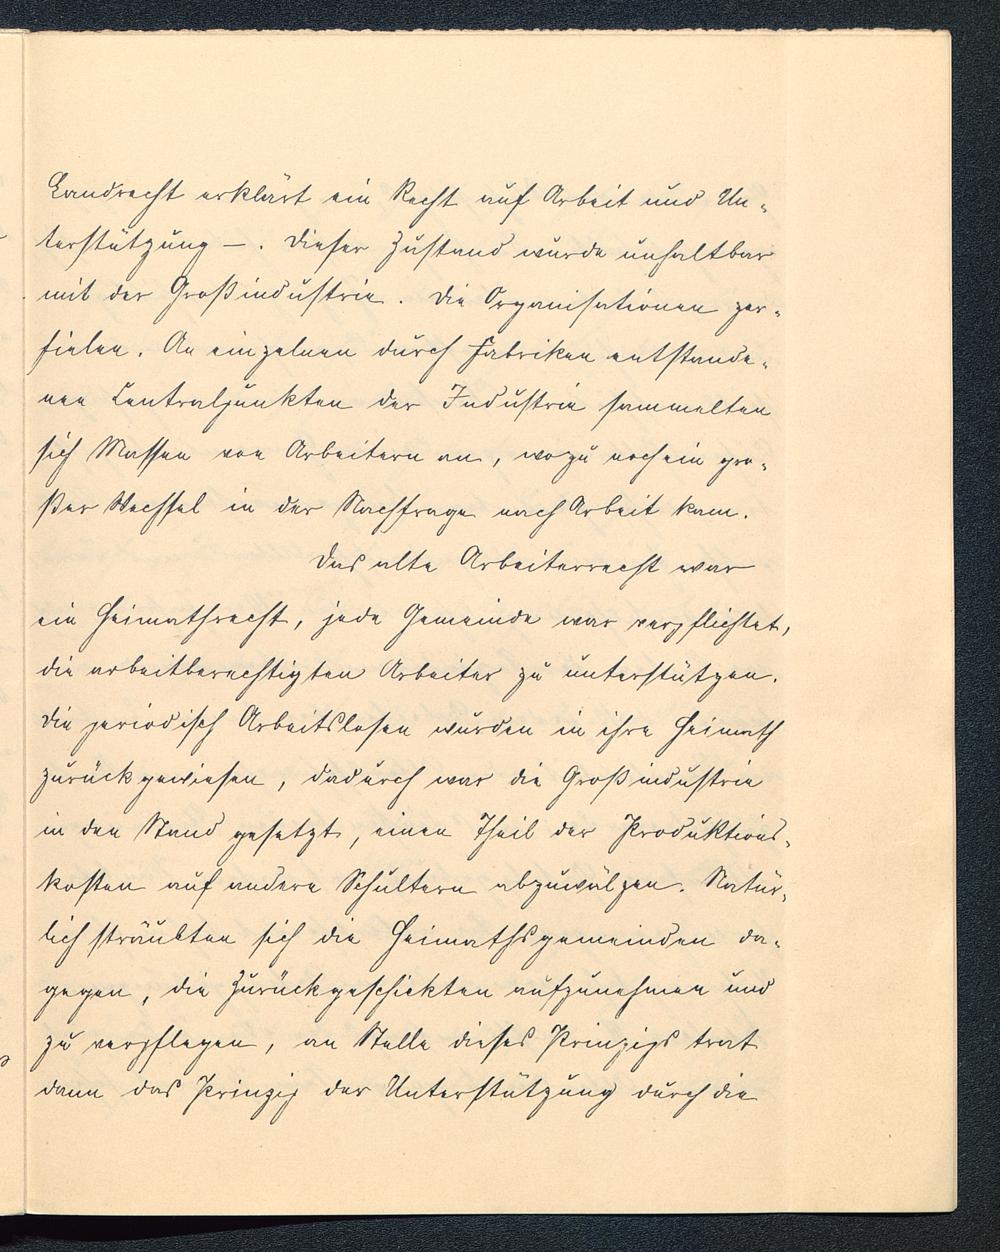 Landrecht erklärt ein Recht auf Arbeit und Un-
terstützung –. Dieser Zustand wurde unhaltbar
mit der Großindustrie. Die Organisationen zer-
fielen. An einzelnen durch Fabriken entstande-
nen Centralpunkten der Industrie sammelten
sich Massen von Arbeitern an, wozu noch ein gro-
ßer Wechsel in der Nachfrage nach Arbeit kam.
Das alte Arbeiterrecht war
ein Heimathrecht, jede Gemeinde war verpflichtet,
die arbeitberechtigten Arbeiter zu unterstützen.
Die periodisch Arbeitslosen wurden in ihre Heimath
zurückgewiesen, dadurch war die Großindustrie
in den Stand gesetzt, einen Theil der Produktions-
kosten auf andere Schultern abzuwälzen. Natür-
lich sträubten sich die Heimathsgemeinden da-
gegen, die Zurückgeschickten aufzunehmen und
zu verpflegen, an Stelle dieses Prinzips trat
dann das Prinzip der Unterstützung durch die